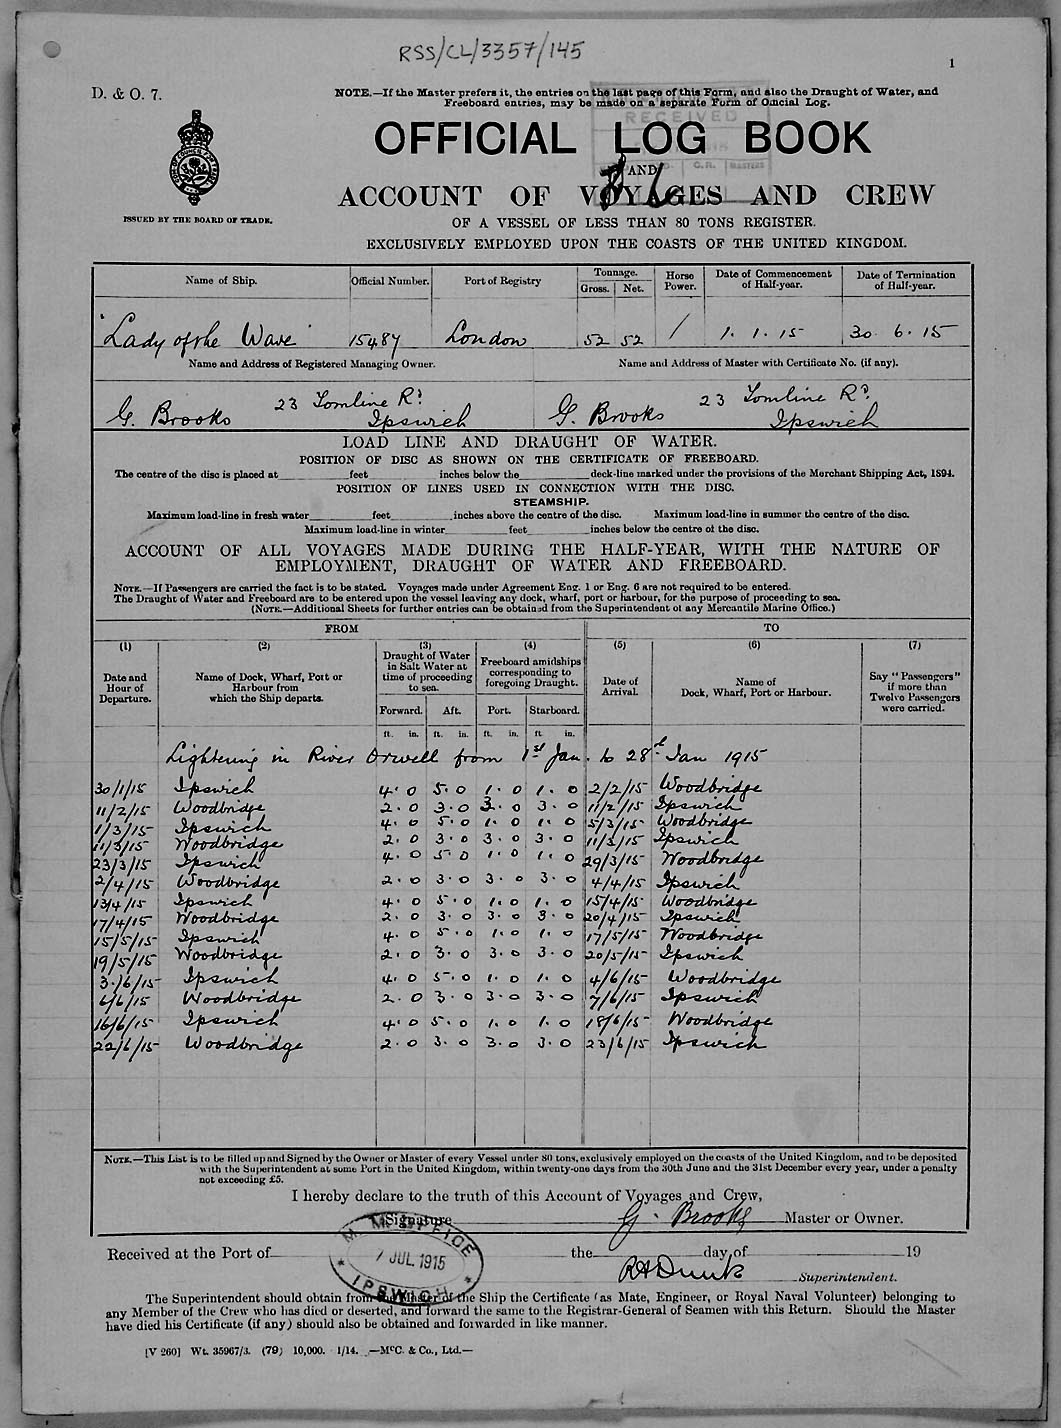 RSS/CL/3357/145
1
D. & O. 7.
NOTE.—If the Master prefers it, the entries on the last page of this Form, and also the Draught of Water, and
Freeboard entries, may be made on a separate Form of Official Log.
RECEIVED
OFFICIAL LOG BOOK
AND
C.R. MASTERS
ACCOUNT OF VOYAGES AND CREW
ISSUED BY THE BOARD OF TRADE.
OF A VESSEL OF LESS THAN 80 TONS REGISTER.
EXCLUSIVELY EMPLOYED UPON THE COASTS OF THE UNITED KINGDOM.
Name of Ship. Official Number. Port of Registry Tonnage. Gross. Net. Horse Power. Date of Commencement of Half-year. Date of Termination of Half-year.
"Lady of the Wave" 15487 London 52 52 / 1. 1. 15 30. 6. 15
Name and Address of Registered Managing Owner. Name and Address of Master with Certificate No. (if any).
G. Brooks 23 Tomline Rd. Ipswich G. Brooks 23 Tomline Rd. Ipswich
LOAD LINE AND DRAUGHT OF WATER.
POSITION OF DISC AS SHOWN ON THE CERTIFICATE OF FREEBOARD.
The centre of the disc is placed at feet inches below the deck-line marked under the provisions of the Merchant Shipping Act, 1894.
POSITION OF LINES USED IN CONNECTION WITH THE DISC.
STEAMSHIP.
Maximum load-line in fresh water feet inches above the centre of the disc. Maximum load-line in summer the centre of the disc.
Maximum load-line in winter feet inches below the centre of the disc.
ACCOUNT OF ALL VOYAGES MADE DURING THE HALF-YEAR, WITH THE NATURE OF
EMPLOYMENT, DRAUGHT OF WATER AND FREEBOARD.
NOTE.—If Passengers are carried the fact is to be stated. Voyages made under Agreement Eng. 1 or Eng. 6 are not required to be entered.
The Draught of Water and Freeboard are to be entered upon the vessel leaving any dock, wharf, port or harbour, for the purpose of proceeding to sea.
(NOTE.—Additional Sheets for further entries can be obtained from the Superintendent of any Mercantile Marine Office.)
FROM TO
(1) (2) (3) (4) (5) (6) (7)
Date and Hour of Departure. Name of Dock, Wharf, Port or Harbour from which the Ship departs. Draught of Water in Salt Water at time of proceeding to sea. Freeboard amidships corresponding to foregoing Draught. Date of Arrival. Name of Dock, Wharf, Port or Harbour. Say "Passengers" if more than Twelve Passengers were carried.
Forward. Aft. Port. Starboard.
ft. in. ft. in. ft. in. ft. in.
Lightering in River Orwell from 1st Jan. to 28th Jan 1915
30/1/15 Ipswich 4. 0 5. 0 1. 0 1. 0 2/2/15 Woodbridge
11/2/15 Woodbridge 2. 0 3. 0 3. 0 3. 0 11/2/15 Ipswich
1/3/15 Ipswich 4. 0 5. 0 1. 0 1. 0 5/3/15 Woodbridge
11/3/15 Woodbridge 2. 0 3. 0 3. 0 3. 0 11/3/15 Ipswich
23/3/15 Ipswich 4. 0 5 0 1. 0 1. 0 29/3/15 Woodbridge
2/4/15 Woodbridge 2. 0 3. 0 3. 0 3. 0 4/4/15 Ipswich
13/4/15 Ipswich 4. 0 5. 0 1. 0 1. 0 15/4/15 Woodbridge
17/4/15 Woodbridge 2. 0 3. 0 3. 0 3. 0 20/4/15 Ipswich
15/5/15 Ipswich 4. 0 5. 0 1. 0 1. 0 17/5/15 Woodbridge
19/5/15 Woodbridge 2. 0 3. 0 3. 0 3. 0 20/5/15 Ipswich
3/6/15 Ipswich 4. 0 5. 0 1. 0 1. 0 4/6/15 Woodbridge
6/6/15 Woodbridge 2. 0 3. 0 3. 0 3. 0 7/6/15 Ipswich
16/6/15 Ipswich 4. 0 5. 0 1. 0 1. 0 18/6/15 Woodbridge
22/6/15 Woodbridge 2. 0 3. 0 3. 0 3. 0 23/6/15 Ipswich
NOTE.—This List is to be filled up and Signed by the Owner or Master of every Vessel under 80 tons, exclusively employed on the coasts of the United Kingdom, and to be deposited
with the Superintendent at some Port in the United Kingdom, within twenty-one days from the 30th June and the 31st December every year, under a penalty
not exceeding £5.
I hereby declare to the truth of this Account of Voyages and Crew,
Signature G. Brooks Master or Owner.
Received at the Port of the day of 19
M. M. OFFICE
7 JUL 1915
IPSWICH
Superintendent.
The Superintendent should obtain from the Master of the Ship the Certificate (as Mate, Engineer, or Royal Naval Volunteer) belonging to
any Member of the Crew who has died or deserted, and forward the same to the Registrar-General of Seamen with this Return. Should the Master
have died his Certificate (if any) should also be obtained and forwarded in like manner.
[V 260] Wt. 35967/3. (79) 10,000. 1/14. —McC. & Co., Ltd.—